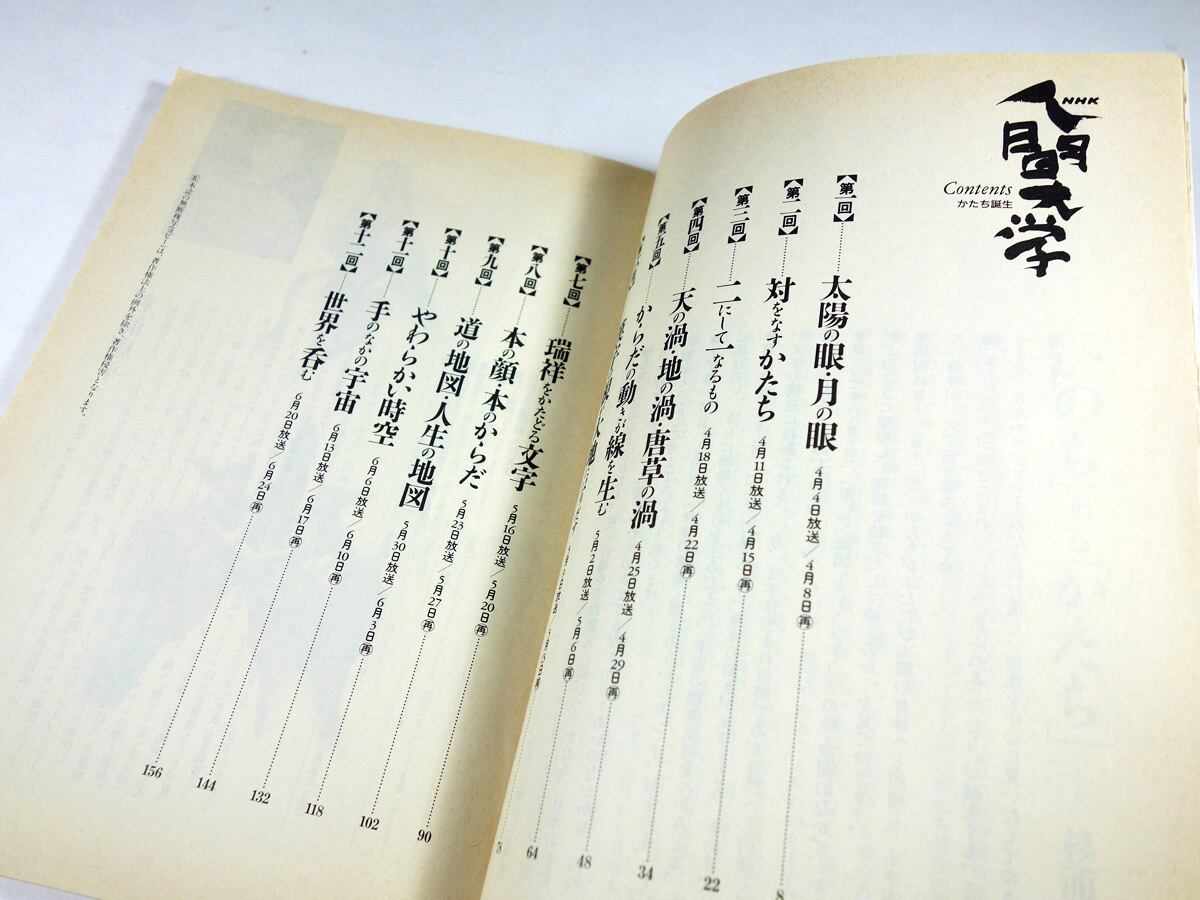 NHK
人間大学
Contents
かたち誕生
【第一回】 太陽の眼・月の眼 4月4日放送/4月8日㊝ 8
【第二回】 対をなすかたち 4月11日放送/4月15日㊝ 22
【第三回】 二にして一なるもの 4月18日放送/4月22日㊝ 34
【第四回】 天の渦・地の渦・唐草の渦 4月25日放送/4月29日㊝ 48
【第五回】 からだの動きが線を生む 5月2日放送/5月6日㊝ 64
78
【第七回】 瑞祥をかたどる文字 5月16日放送/5月20日㊝ 90
【第八回】 本の顔・本のからだ 5月23日放送/5月27日㊝ 102
【第九回】 道の地図・人生の地図 5月30日放送/6月3日㊝ 118
【第十回】 やわらかい時空 6月6日放送/6月10日㊝ 132
【第十一回】 手のなかの宇宙 6月13日放送/6月17日㊝ 144
【第十二回】 世界を呑む 6月20日放送/6月24日㊝ 156
本誌の無断複写(コピー)は、著作権法上の例外を除き、著作権侵害となります。